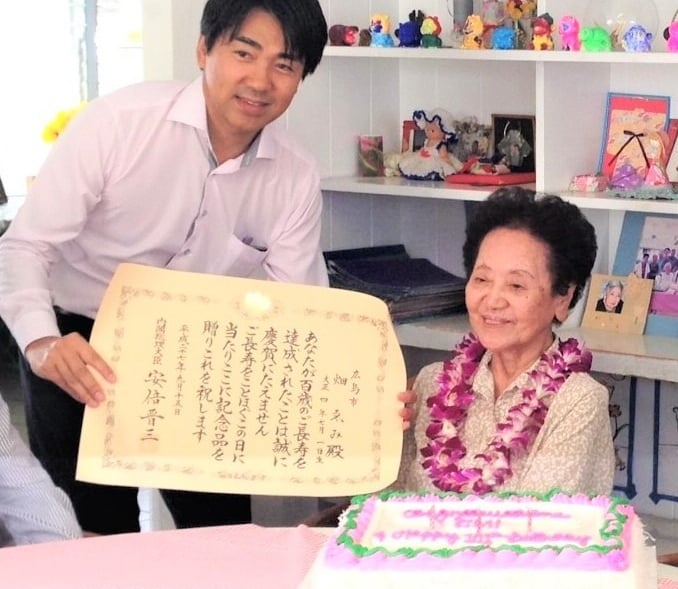 広島市
畑 ゑみ殿
大正四年七月一日生
あなたが百歳のご長寿を
達成されたことは誠に
慶賀にたえません
ご長寿をことほぎこの日に
当たりここに記念品を
贈りこれを祝します
平成二十七年九月十五日
内閣総理大臣 安倍晋三
Congratulations
EMI
Happy Birthday